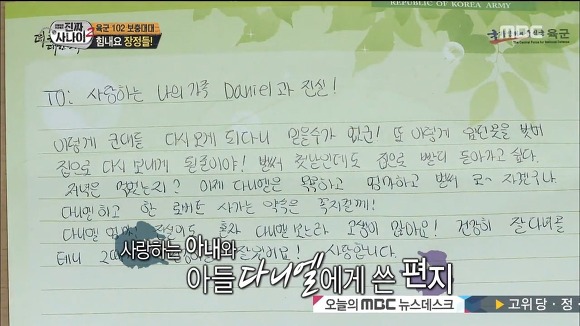 REPUBLIC OF KOREA ARMY
MBC
진짜
사나이
육군 102 보충대대
힘내요 장정들!
TO: 사랑하는 나의 가족 Daniel과 진신!
이렇게 군대를 다시오게 되다니 믿을수가 없군! 또 이렇게 입던옷을 벗어
집으로 다시 보내게 될줄이야! 벌써 첫날인데도 집으로 빨리 돌아가고 싶다.
저녁은 먹었는지? 이제 다니엘은 목욕하고 맘마하고 벌써 코~ 자겠구나.
다니엘하고 한 로버트 사가는 약속은 꼭지킬께!
다니엘 엄마! 혼자 다니엘 보느라 고생이 많아요! 건강히 잘 다녀올
테니 사랑합니다.
사랑하는 아내와
아들 다니엘에게 쓴 편지
오늘의 MBC 뉴스데스크
▶고위당·정·